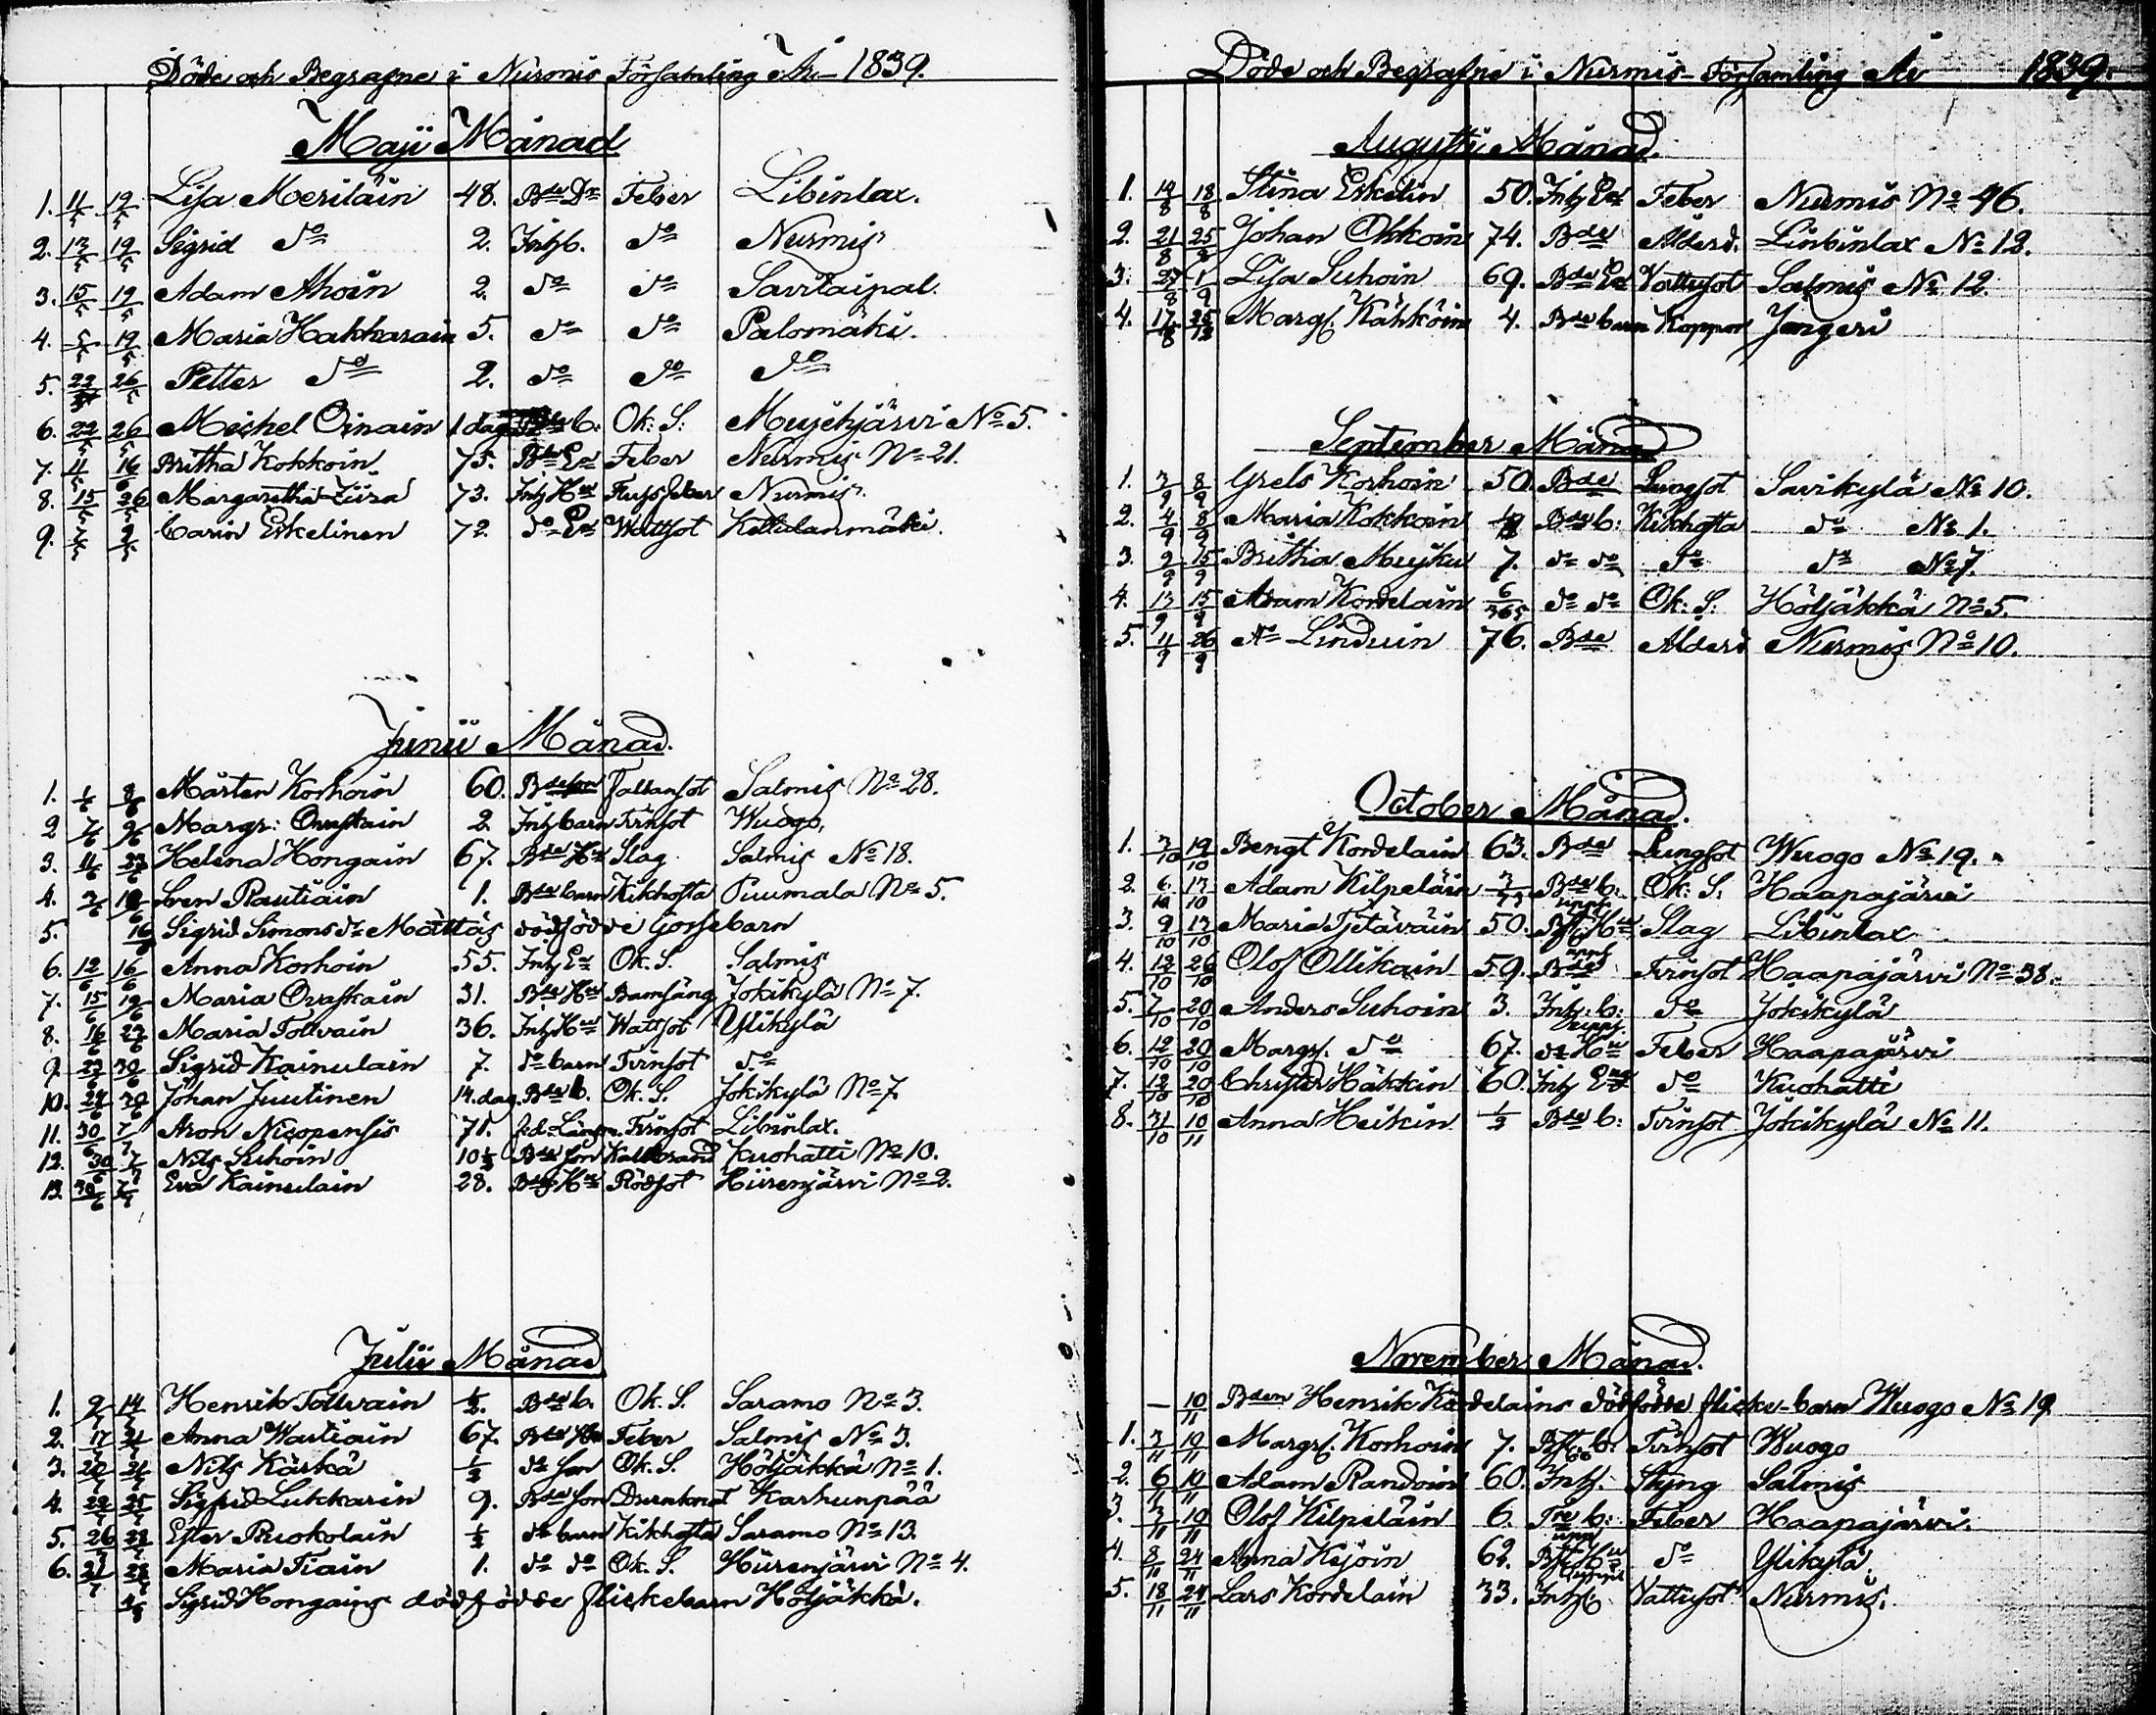 Döde och Begrafne i Nurmis Församling År 1839.
Maji Månad
1. 11/5 19/5 Lisa Meriläin 48. Bde Dr Feber Libinlax.
2. 13/5 19/5 Sigrid do 2. Inhb. do Nurmis
3. 15/5 19/5 Adam Ahoin 2. do do Savilaipal.
4. 19/5 Maria Hakkarain 5. do do Palomäki.
5. 22/5 26/5 Petter do 2. do do do
6. 22/5 26/5 Michel Oinain 1 dag b. Ok: S: Mujejärvi No 5.
7. 11/5 16/6 Britha Kokkoin 75. Bde Ea Feber Nurmis No 21.
8. 15/5 26/5 Margaretha 73. Inh Hu Nurmis
9. 7/5 9/5 Carin Eskelinen 72. do Ea Wattsot Kellulanmäki.
Junii Månad.
1. 1/6 8/6 Mårten Korhoin 60. Bde Fallansot Salmis No 28.
2 7/6 9/6 Margr: Ovaskain 2. Inh barn Tvinsot Wuogo,
3. 11/6 23/6 Helena Hongain 67. Bde Hu Slag Salmis No 18.
4. 3/6 10/6 Sven Rautiain 1. Bde barn Kikhosta Puumala No 5.
5. 16/6 Sigrid Simons dr Mättäs dödfödde Gossebarn
6. 12/6 16/6 Anna Korhoin 55. Inh Ea Ok. S. Salmis
7. 15/6 19/6 Maria Ovaskain 31. Bde Hu Barnsäng Jokikylä No 7.
8. 16/6 23/6 Maria Tolvain 36. Inh Hu Wattsot Ylikylä
9. 23/6 30/6 Sigrid Kainulain 7. do barn Tvinsot do
10. 24/6 30/6 Johan Juutinen 14. dag. Bde b. Ok. S. Jokikylä No 7.
11. 30/6 7/7 Aron Nicopensis 71. f.d. Länsm. Tvinsot Libinlax.
12. 30/6 7/7 Nils Suhoin 10 1/2 Bde son Kallbrand Kuohatti No 10.
13. 30/6 7/7 Eva Kainulain 28. Bde Hu Rödsot Hiirenjärvi No 2.
Julii Månad
1. 9/7 14/7 Henrik Tolvain 1/2. Bde b. Ok. S. Saramo No 3.
2. 17/7 21/7 Anna Wartiain 67. Bde Hu Feber Salmis No 3.
3. 20/7 21/7 Nils Kärkä 1/2 do son Ok. S. Höljäkkä No 1.
4. 22/7 25/7 Sigfrid Lukkarin 9. Bde son Drunknat Karhunpää
5. 26/7 28/7 Ester Ruokolain 1/2 do barn Kikhosta Saramo No 13.
6. 27/7 28/7 Maria Tiain 1. do do Ok. S. Hiirenjärvi No 4.
4/8 Sigrid Hongains dödfödde flickebarn Höljäkkä.
Döde och Begrafne i Nurmis Församling År 1839.
Augusti Månad.
1. 14/8 18/8 Stina Eskelin 50. Inh Ea Feber Nurmis No 46.
2. 21/8 25/8 Johan Okkoin 74. Bde Ålderd. Libinlax No 12.
3. 27/8 1/9 Lisa Suhoin 69. Bde Ea Vattusot Salmis No 12.
4. 17/8 25/12 Margr. Kähköin 4. Bde barn Koppor Jongeri
September Månad
1. 3/9 8/9 Grels Korhoin 50. Bde Lungsot Savikylä No 10.
2. 4/9 8/9 Maria Kokkoin Bde b: Kikhosta do No 1.
3. 9/9 15/9 Britha Mujku 7. do do do do No 7.
4. 13/9 15/9 Adam Kordelain 6/365 do do Ok: S: Höljäkkä No 5.
5. 11/9 26/9 Ao Linduin 76. Bde Ålderd Nurmis No 10.
October Månad.
1. 3/10 19/10 Bengt Kordelain 63. Bde Lungsot Wuogo No 19.
2. 6/10 13/10 Adam Kilpeläin Bde b: Ok: S: Haapajärvi
3. 9/10 13/10 Maria Tjetäväin 50. Hu Slag Libinlax
4. 12/10 26/10 Olof Ollikain 59. Bde Tvinsot Haapajärvi No 38.
5. 7/10 20/10 Anders Suhoin 3. Inh. b: do Jokikylä
6. 12/10 20/10 Margr. do 67. do Hu Feber Haapajärvi
7. 12/10 20/10 Christer Häkkin 60. Inh do Kuohatti
8. 31/10 10/11 Anna Heikin 1/2 Bde b: Tvinsot Jokikylä No 11.
November Månad.
— 10/11 Bden Henrik Kordelains dödfödde flicke-barn Wuogo No 19
1. 3/11 10/11 Margr. Korhoin 7. b: Tvinsot Wuogo
2. 6/11 10/11 Adam Randoin 60. Inh. Styng Salmis
3. 3/11 10/11 Olof Kilpeläin 6. b: Feber Haapajärvi.
4. 8/11 24/11 Anna Kejoin 62. Hu do Ylikylä
5. 18/11 24/11 Lars Kordelain 33. Inh Vattusot Nurmis.